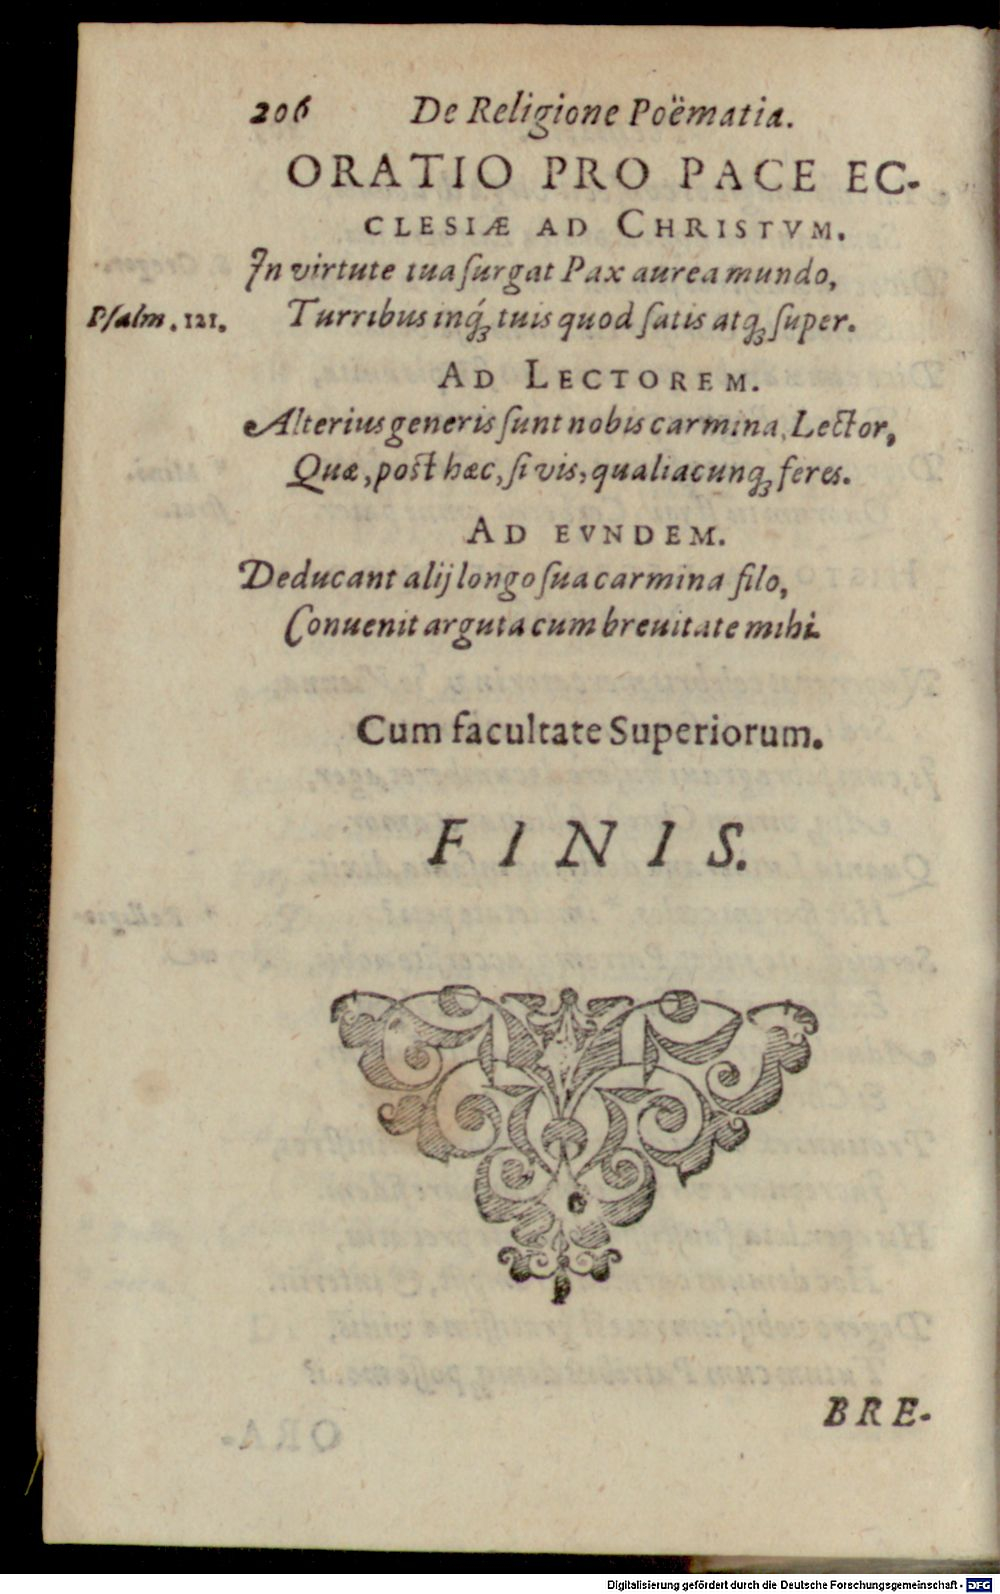 206 De Religione Poëmatia.
ORATIO PRO PACE EC-
CLESIÆ AD CHRISTVM.
In virtute tua ſurgat Pax aurea mundo,
Pſalm. 121. Turribus inq́ꝫ tuis quod ſatis atqꝫ ſuper.
AD LECTOREM.
Alterius generis ſunt nobis carmina, Lector,
Quæ, poſt hæc, ſi vis, qualiacunqꝫ feres.
AD EVNDEM.
Deducant alij longo ſua carmina filo,
Conuenit arguta cum breuitate mihi.
Cum facultate Superiorum.
FINIS.
BRE-
Digitalisierung gefördert durch die Deutsche Forschungsgemeinschaft - DFG